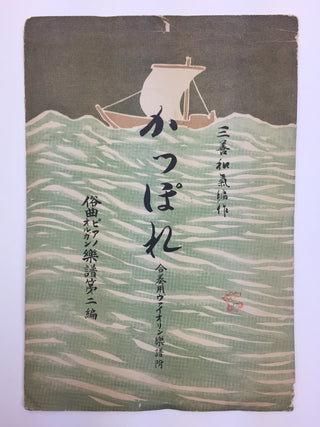 三善和氣編作
かっぽれ
合奏用ヴァイオリン樂譜附
俗曲ピアノオルガン樂譜第二編